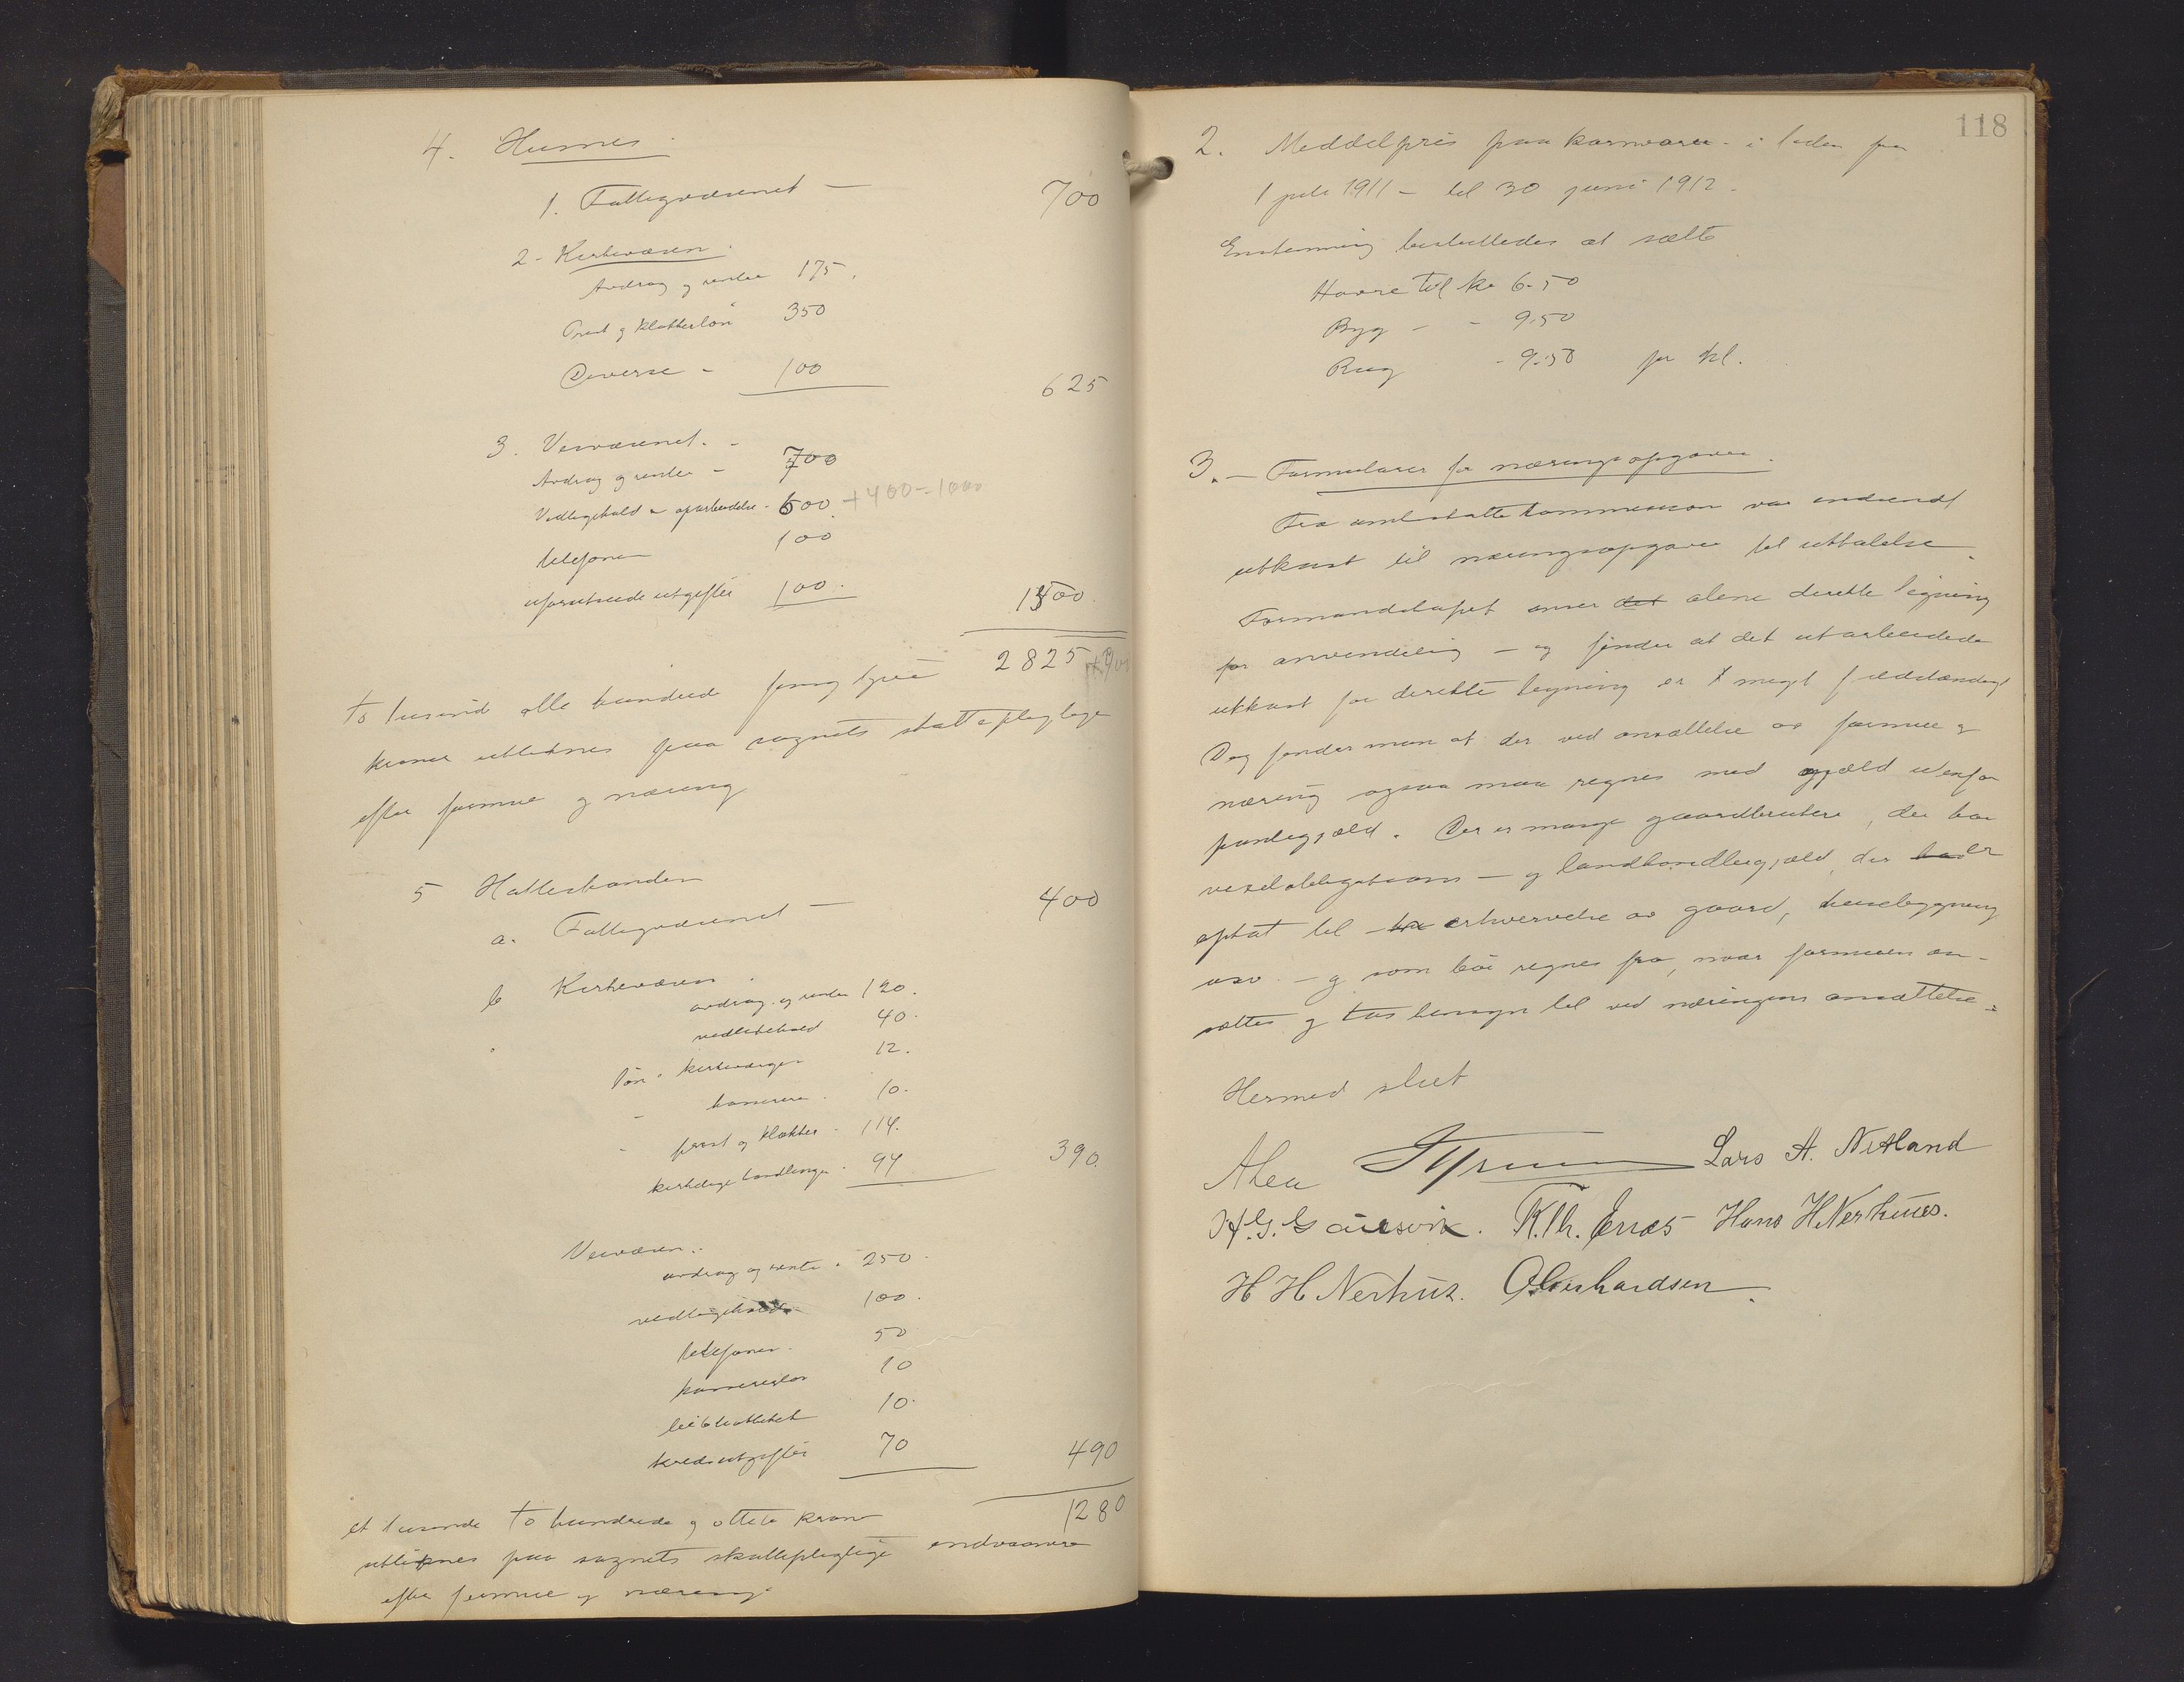 4. Husnes
1. Fattigvæsenet — 700
2 - Kirkevæsen.
Avdrag og renter 175.
Prest og klokkerløn 350
Diverse - 100
625
3. Veivæsenet. -
Avdrag og renter - 700
Vedlikehold - oparbeidelse - 600 + 400 = 1000
telefoner 100
uforutseede utgifter 100.
1500.
2825
to tusind otte hundrede
kroner utlignes paa sognets skattepligtige
efter formue og næring
5 Hatlestranden
a. Fattigvæsenet — 400
b Kirkevæsen.
avdrag og renter 120.
vedlikehold 40.
løn: kirkeverger 12.
- kasserer. 10.
- prest og klokker - 114.
kirkelige handlinger. 94
390.
Veivæsen:
avdrag og rente. 250.
vedlikehold 100.
telefoner. 50
kassererløn 10
10.
kredsutgifter 70
490
1280
et tusende to hundrede og otteti kroner
utliknes paa sognets skattepligtige indvaanere
efter formue og næring.
118
2. Middelpris paa kornvarer - i tiden fra
1 juli 1911 - til 30 juni 1912.
Enstemmig besluttedes at sætte
Havre til kr 6.50
Byg - - 9.50
Rug - 9.50 pr hl.
3. — Formularer for næringsopgaver.
Fra amtsskattekommission var indsendt
utkast til næringsopgaver til uttalelse.
Formandskapet anser det alene direkte ligning
for anvendelig — og finder at det utarbeidede
utkast for direkte ligning er meget fuldstændigt
Dog finder man at der ved ansættelse av formue og
næring ogsaa maa regnes med gjæld utenfor
pantegjæld. Der er mange gaardbrukere, der har
vexelobligations — og landhandlergjæld, der er
optat til erhvervelse av gaard, husebygning
osv. — og som bør regnes fra, naar formuen an-
sættes og tas hensyn til ved næringens ansættelse.
Hermed slut
Lars A. Netland
H. G. Gausvik. K. Th. Enæs Hans H. Nerhus.
H H Nerhus. O Gerhardsen